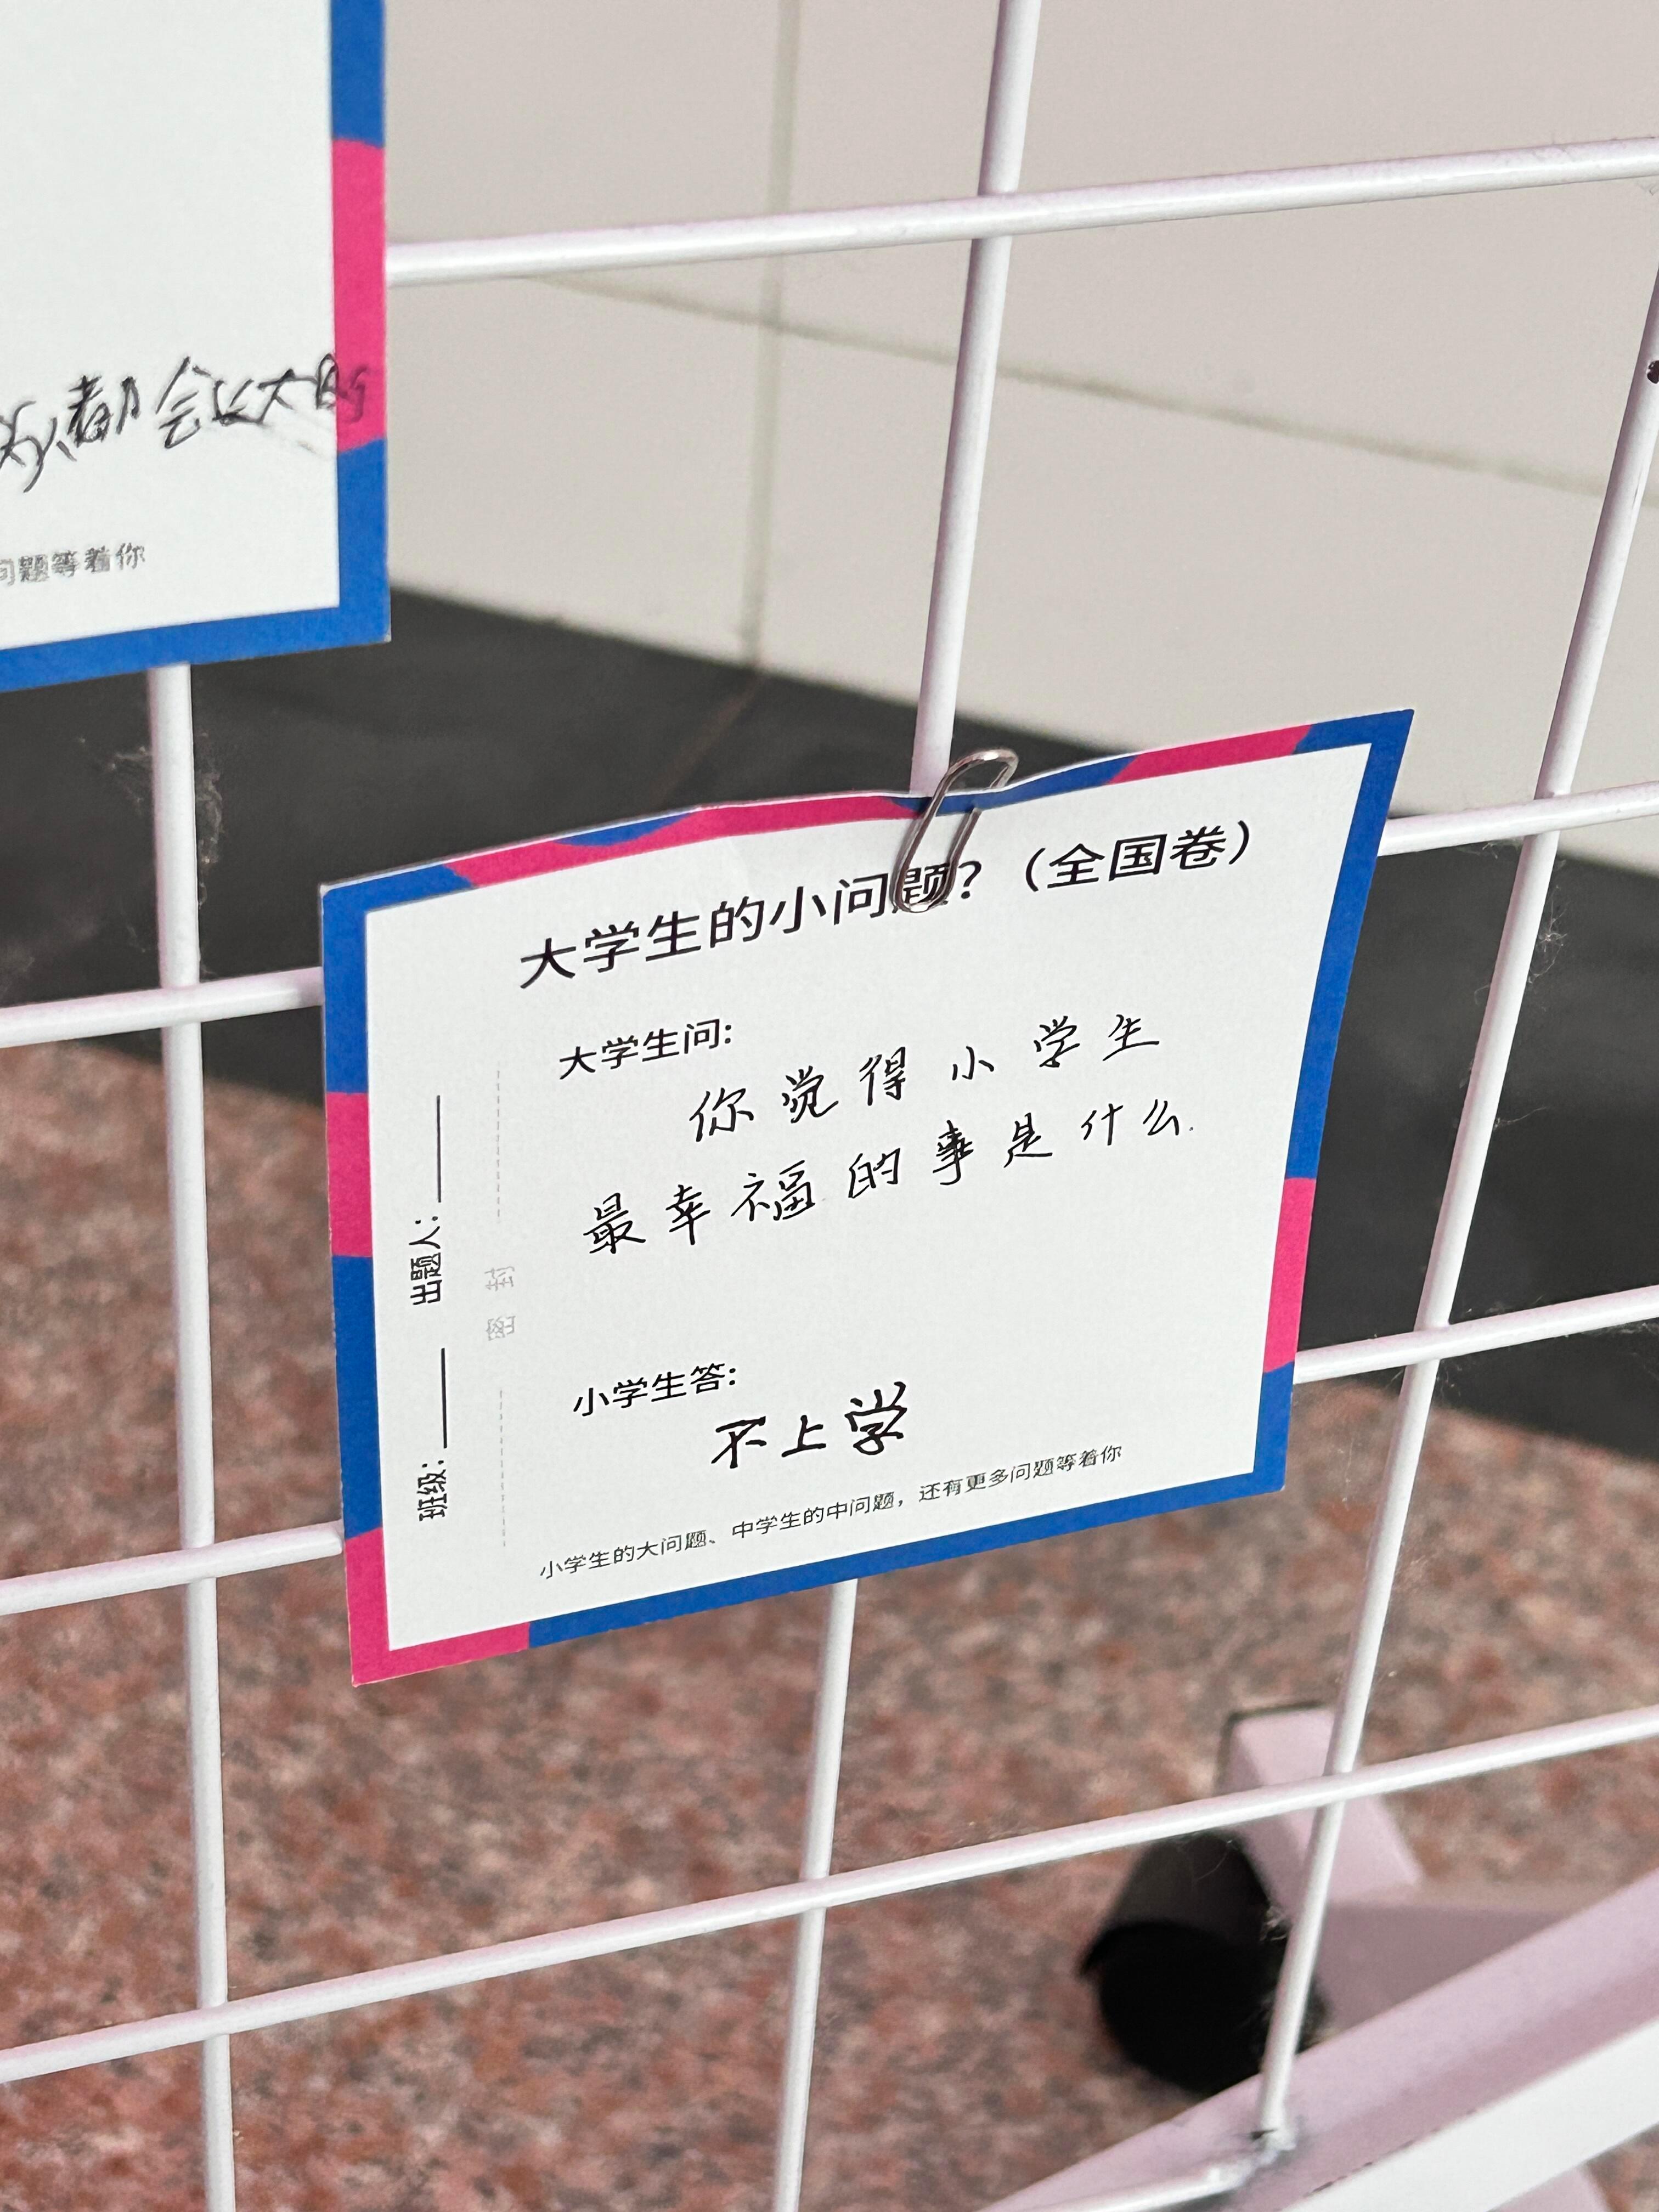 都会长大的
问题等着你
大学生的小问题？（全国卷）
大学生问:
你觉得小学生
最幸福的事是什么
小学生答:
不上学
小学生的大问题、中学生的中问题，还有更多问题等着你
班级:
出题人:
密 封